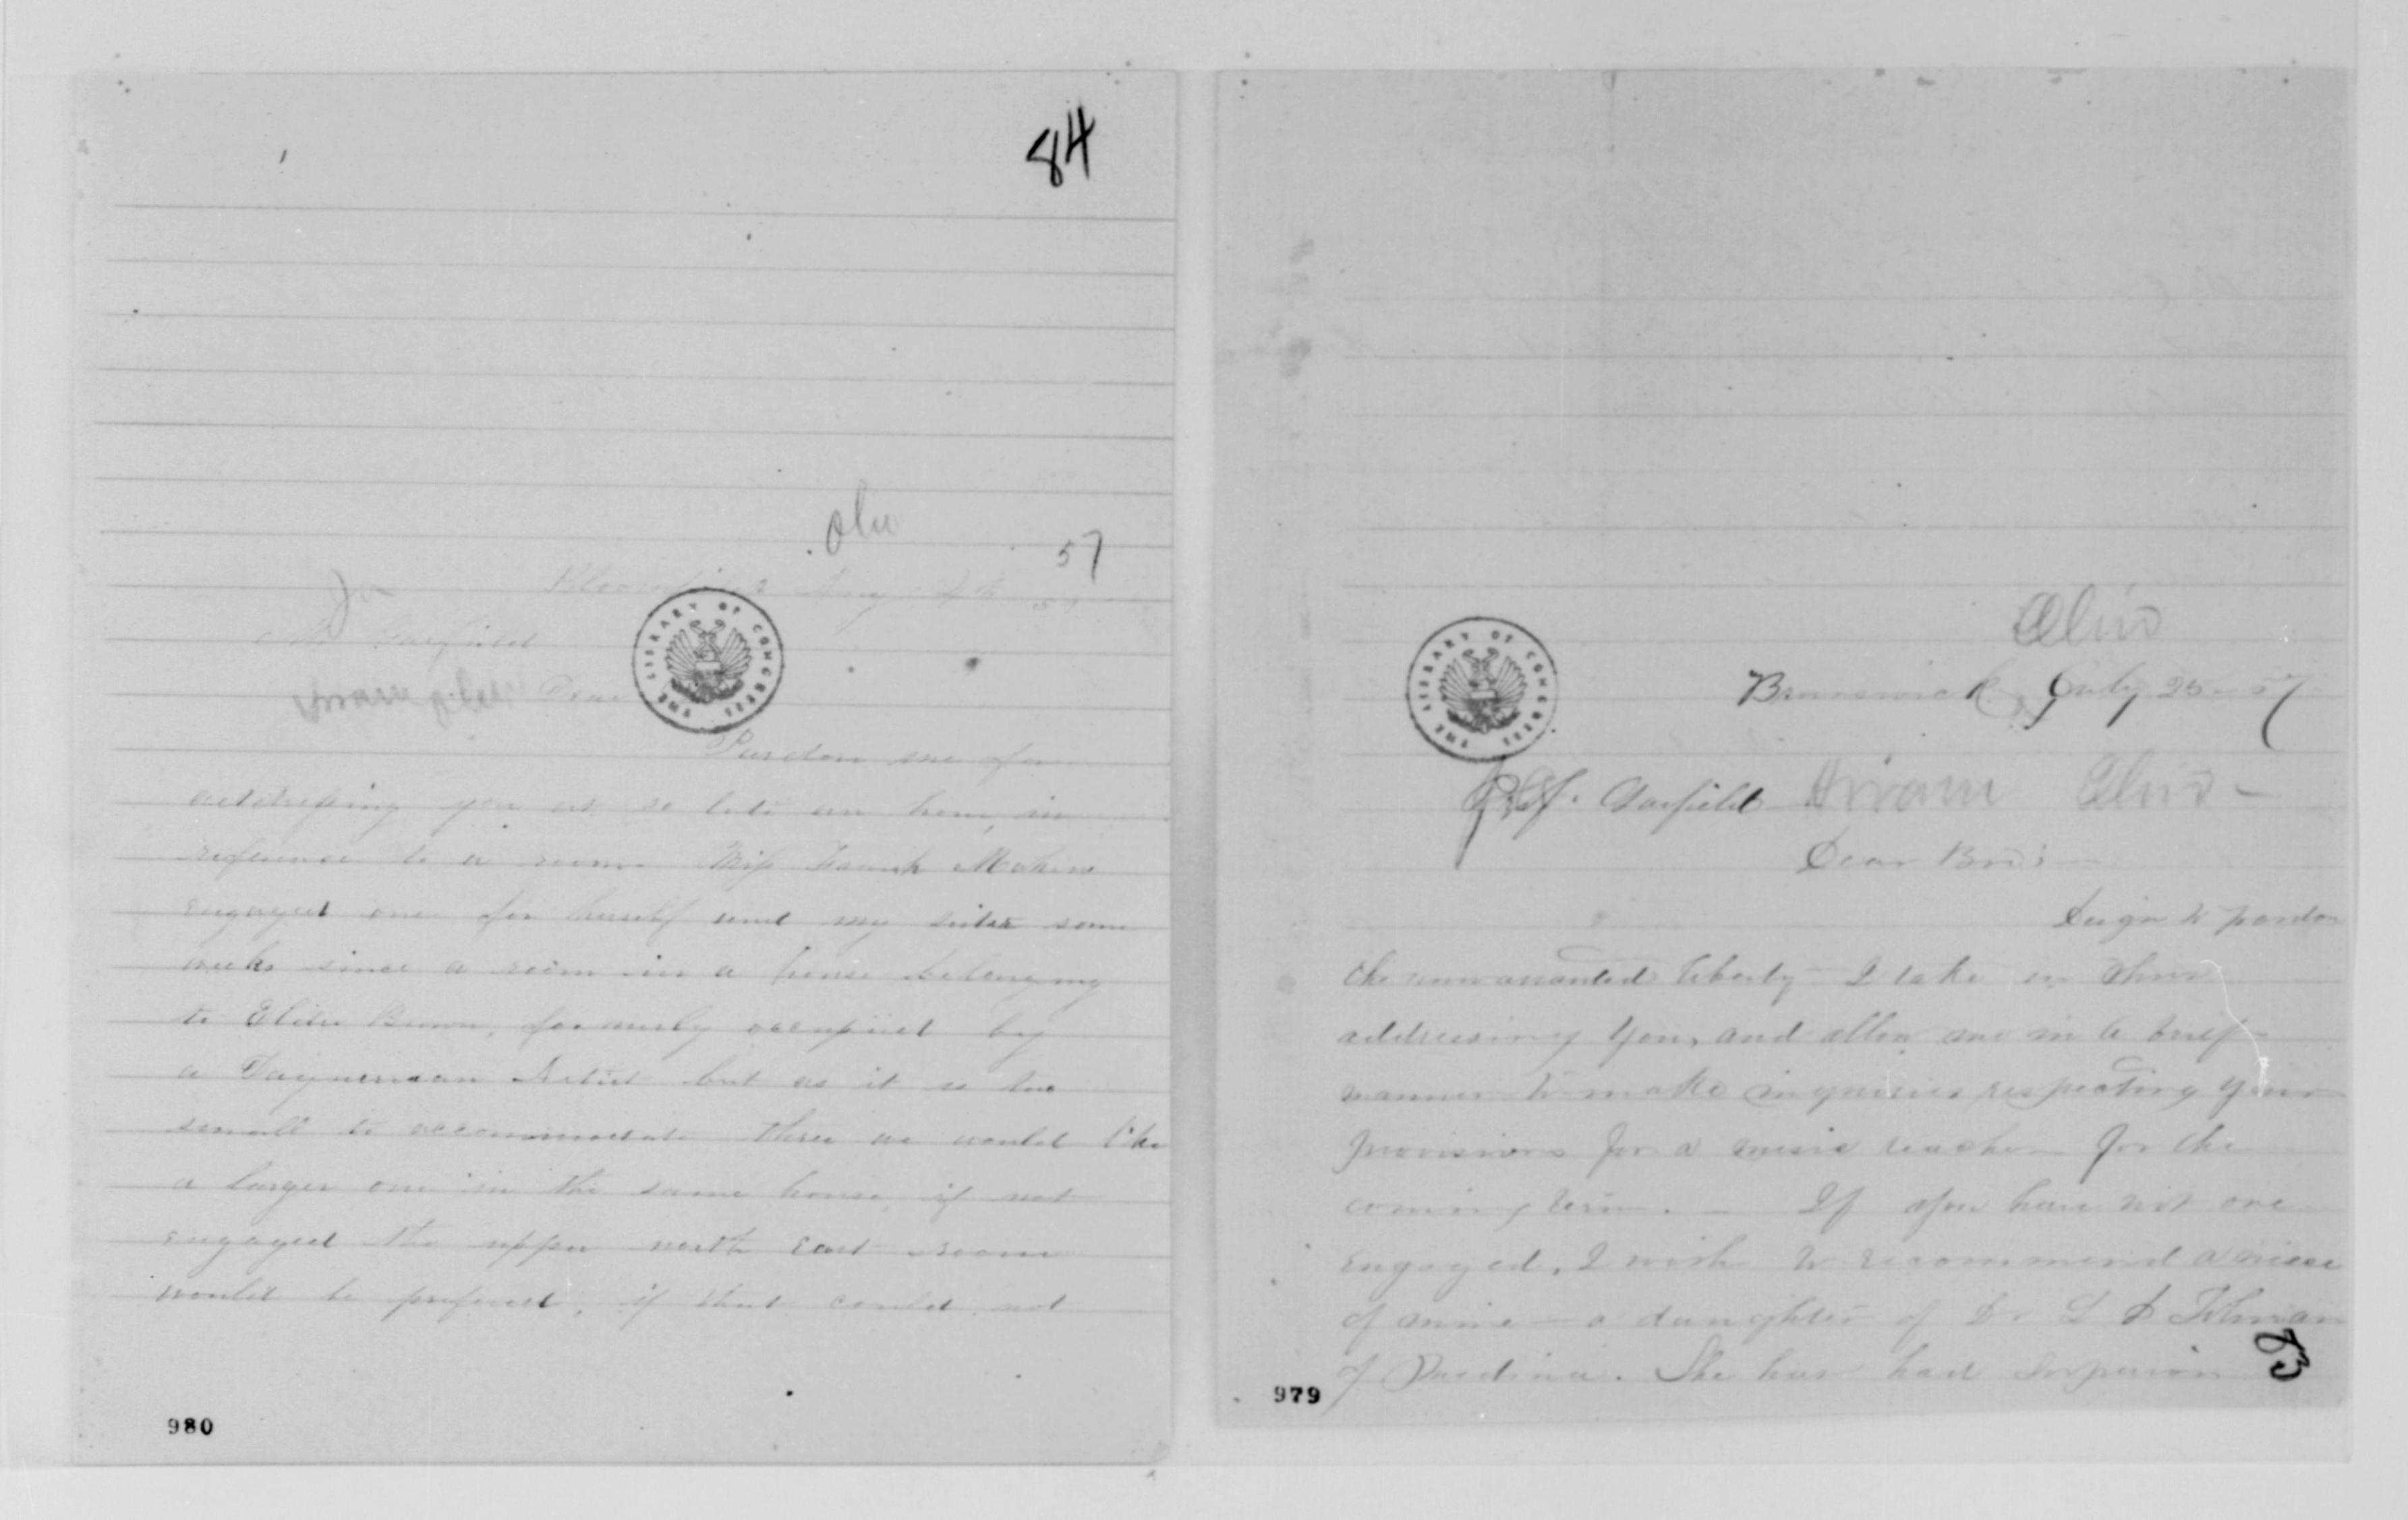 84
Ohio
57
Bloomfield Aug 4th 57
Mr Garfield
Hiram Ohio Dear
THE LIBRARY OF CONGRESS
Pardon me for
addressing you at so late an hour, in
reference to a room Miss Makins
engaged one for herself and my sister some
weeks since a room in a house belonging
to Elder Brown, formerly occupied by
a Daguerrean Artist but as it is too
small to accommodate three we would like
a larger one in the same house, if not
engaged the upper north east room
would be prefered, if that could not
980
Ohio
Brunswick July 25 - 57
THE LIBRARY OF CONGRESS
Prof. Garfield Hiram Ohio -
Dear Bro: -
Deign to pardon
the unwarranted liberty I take in thus
addressing you, and allow me in a brief
manner to make inquiries respecting your
provisions for a music teacher for the
coming term. - If you have not one
engaged, I wish to recommend a niece
of mine - a daughter of Dr L D Tolman
of . She has had
83
979